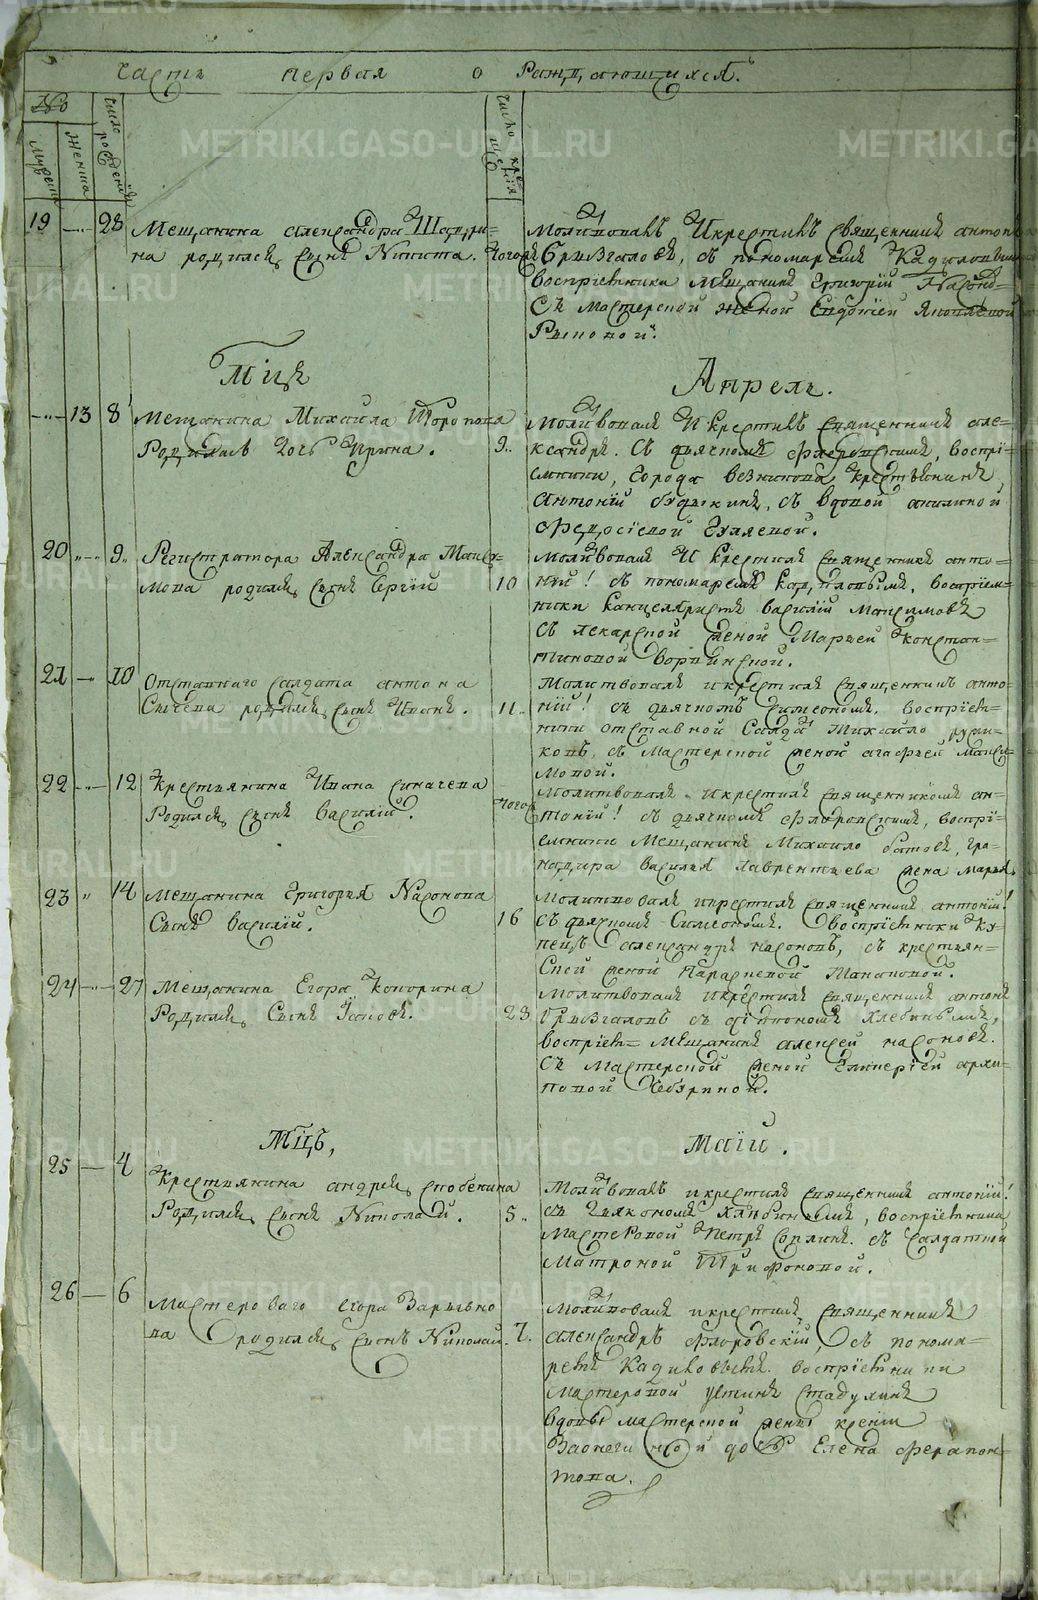 Часть первая о Раждающихся.
№
мужеска
женска
число рождениѣ
число крещенія
19 28 Мещанина александра Шадри=
на родился сынъ Никита. тогожъ
Молитвовалъ И крестилъ священникъ антонъ
Брызгаловъ, съ пономаремъ Кадиловымъ
воспріемники Мещанинъ Григорій Насоно=
съ мастерской женой Евдокіей Яковлевой
Рыковой.
Мцъ Апрель.
13 8 Мещанина Михайла Торопова
Родилась дочь Ирина. 9.
Молитвовалъ И крестилъ священникъ але=
ксандръ. съ дьячкомъ Флеровскимъ, воспріе=
мники, города крестьянинъ
Антоній съ вдовой акилиной
Федосѣевой Гуляевой.
20 9. Регистратора Александра Макси=
мова родился сынъ Сергій 10
молитвовалъ И крестилъ священникъ анто=
ній! съ пономаремъ Кадиловымъ, воспріем=
ники канцеляристъ василій Максимовъ
съ лекарской женой Марьей Констан=
тиновой
21 10 Отставнаго салдата антона
Сычева родился сынъ Иванъ. 11.
Молитвовалъ и крестилъ священникъ анто=
ній! съ дьячкомъ Симеономъ. воспріем=
ники отставной Салдатъ Михайло
съ мастерской женой агафьей Макси=
мовой.
22 12 Крестьянина Ивана Синачева
Родился сынъ василій. тогож
Молитвовалъ и крестилъ священникомъ ан=
тоній! съ дьячкомъ Флоровскимъ, воспрі=
емники Мещанинъ Михайло батовъ, гра=
надира василья лаврентьева жена марья.
23 14 Мещанина Григорья Насонова
Сынъ василій. 16
молитвовалъ и крестилъ священникъ антоній!
съ дьячкомъ Симеономъ. воспріемники Ку=
пецъ александръ насоновъ, съ крестьян=
ской женой Параскевой Манаковой.
24 27 Мещанина Егора Кокорина
Родился Сынъ Іаковъ. 28
Молитвовалъ и крестилъ священникъ антонъ
Брызгаловъ съ діякономъ Хлебинымъ,
воспріем= Мещанинъ алексей насоновъ.
съ Мастерской женой Гликеріей архи=
повой
Мцъ, Маій.
25 4 Крестьянина андрея скобекина
Родился сынъ Николай. 5.
Молитвовалъ и крестилъ священникъ антоній!
съ дьякономъ Хлебинымъ, воспріемники
Мастеровой Петръ съ Салдаткой
Матроной Трифоновой.
26 6 Мастероваго егора Зырьяно
ва родился сынъ Николай. 7.
Молитвовалъ и крестилъ священникъ
александръ Флоровскій, съ понома=
ремъ Кадиловымъ. воспріемники
мастеровой устинъ стадухинъ
вдовы мастерской жены ксеніи
дочь Елена ферапон=
това.